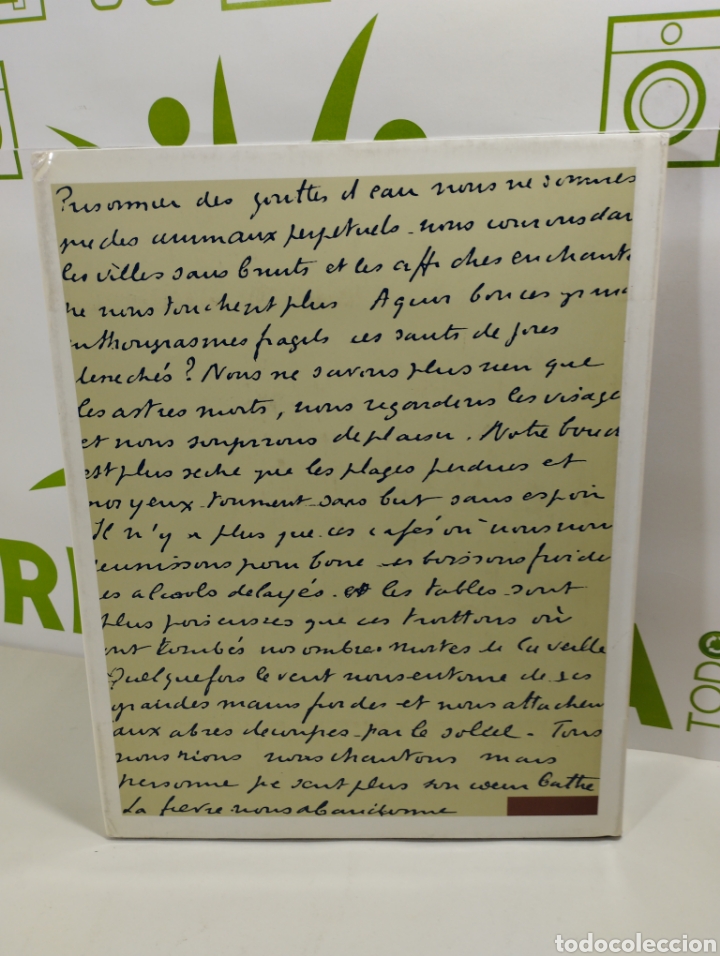 Prisonnier des gouttes d'eau nous ne sommes
que des animaux perpetuels. nous courons dan
les villes sans bruits et les affiches enchanté
ne nous touchent plus A quoi bon ces grand
nthousiasmes fragils ces sauts de joies
desseches? Nous ne savons plus rien que
les astres morts, nous regardons les visage
et nous soupirons de plaisir. Notre bouch
est plus seche que les plages perdues et
nos yeux tournent sans but sans espoir
Il n'y a plus que ces cafés où nous nous
reunissons pour boire ces boissons froide
es alcools delayés. et les tables sont
plus poisseuses que ces trottoirs où
ont tombés nos ombres mortes de la veille
Quelquefois le vent nous entoure de ses
grandes mains froides et nous attachen
aux abres decoupes par le soleil. Tous
nous rions nous chantons mais
personne ne sent plus son coeur batre
La fievre nous abandonne
TODO
todocoleccion